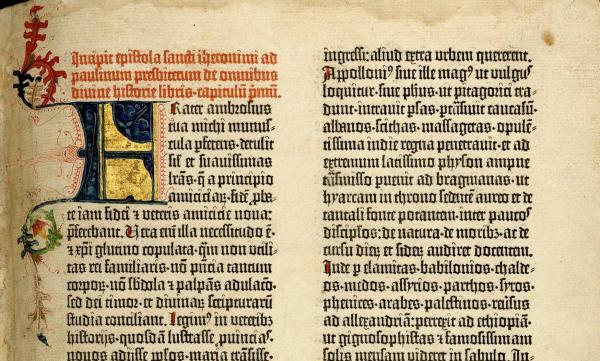 Incipit epistola sancti iheronimi ad
paulinum presbiterum de omnibus
divine historie libris· capitulū pmū·
Frater ambrosius
tua michi munus-
cula pferens· detulit
sil̄ et suauissimas
lrās· q̄ a principio
amiciciaꝝ· fidē· pba-
te iam fidei ⁊ veteris amicicie noua:
pferebant· Vera eni illa necessitudo ē·
⁊ xp̄i glutino copulata· qm̄ non vtili-
tas rei familiaris· non pn̄tia tantum
corpoꝝ· non sbdola ⁊ palpās adulacō·
sed dei timor· et diuinaꝝ scripturarum
studia conciliant· Legim⁹ in veterib⁹
historijs· quosdā lustrasse puincias·
nouos adijsse pl̄os· maria trāsisse·
ingressi: aliud extra urbem quererent·
Appolloni⁹ siue ille mag⁹ ut vulgus
loquitur· siue ph̄us· ut pitagorici tra-
dunt· intrauit psas· ptrāsiuit caucasū·
albanos· scithas· massagetas· opulē-
tissima indie regna penetrauit· et ad
extremum latissimo physon amne
trāsmisso puenit ad bragmanas· ut
hyarcam in throno sedentē aureo et de
tantali fonte potantem· inter paucos
discipl̄os· de natura· de moribꝫ ac de
cursu dieꝝ et sideꝝ audiret docentem·
Inde p elamitas· babilonios· chalde-
os· medos· assyrios· parthos· syros·
phenices· arabes· palestinos· reūsus
ad alexandriā: perrexit ad ethiopiā·
ut gignosophistas ⁊ famosissimam
solis mensam videret in sabulo· In-